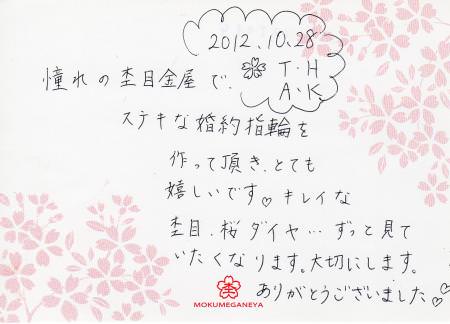 2012.10.28
T・H
A・K
憧れの杢目金屋で、
ステキな婚約指輪を
作って頂き、とても
嬉しいです♡キレイな
杢目、桜ダイヤ…ずっと見て
いたくなります。大切にします。
ありがとうございました♡
MOKUMEGANEYA